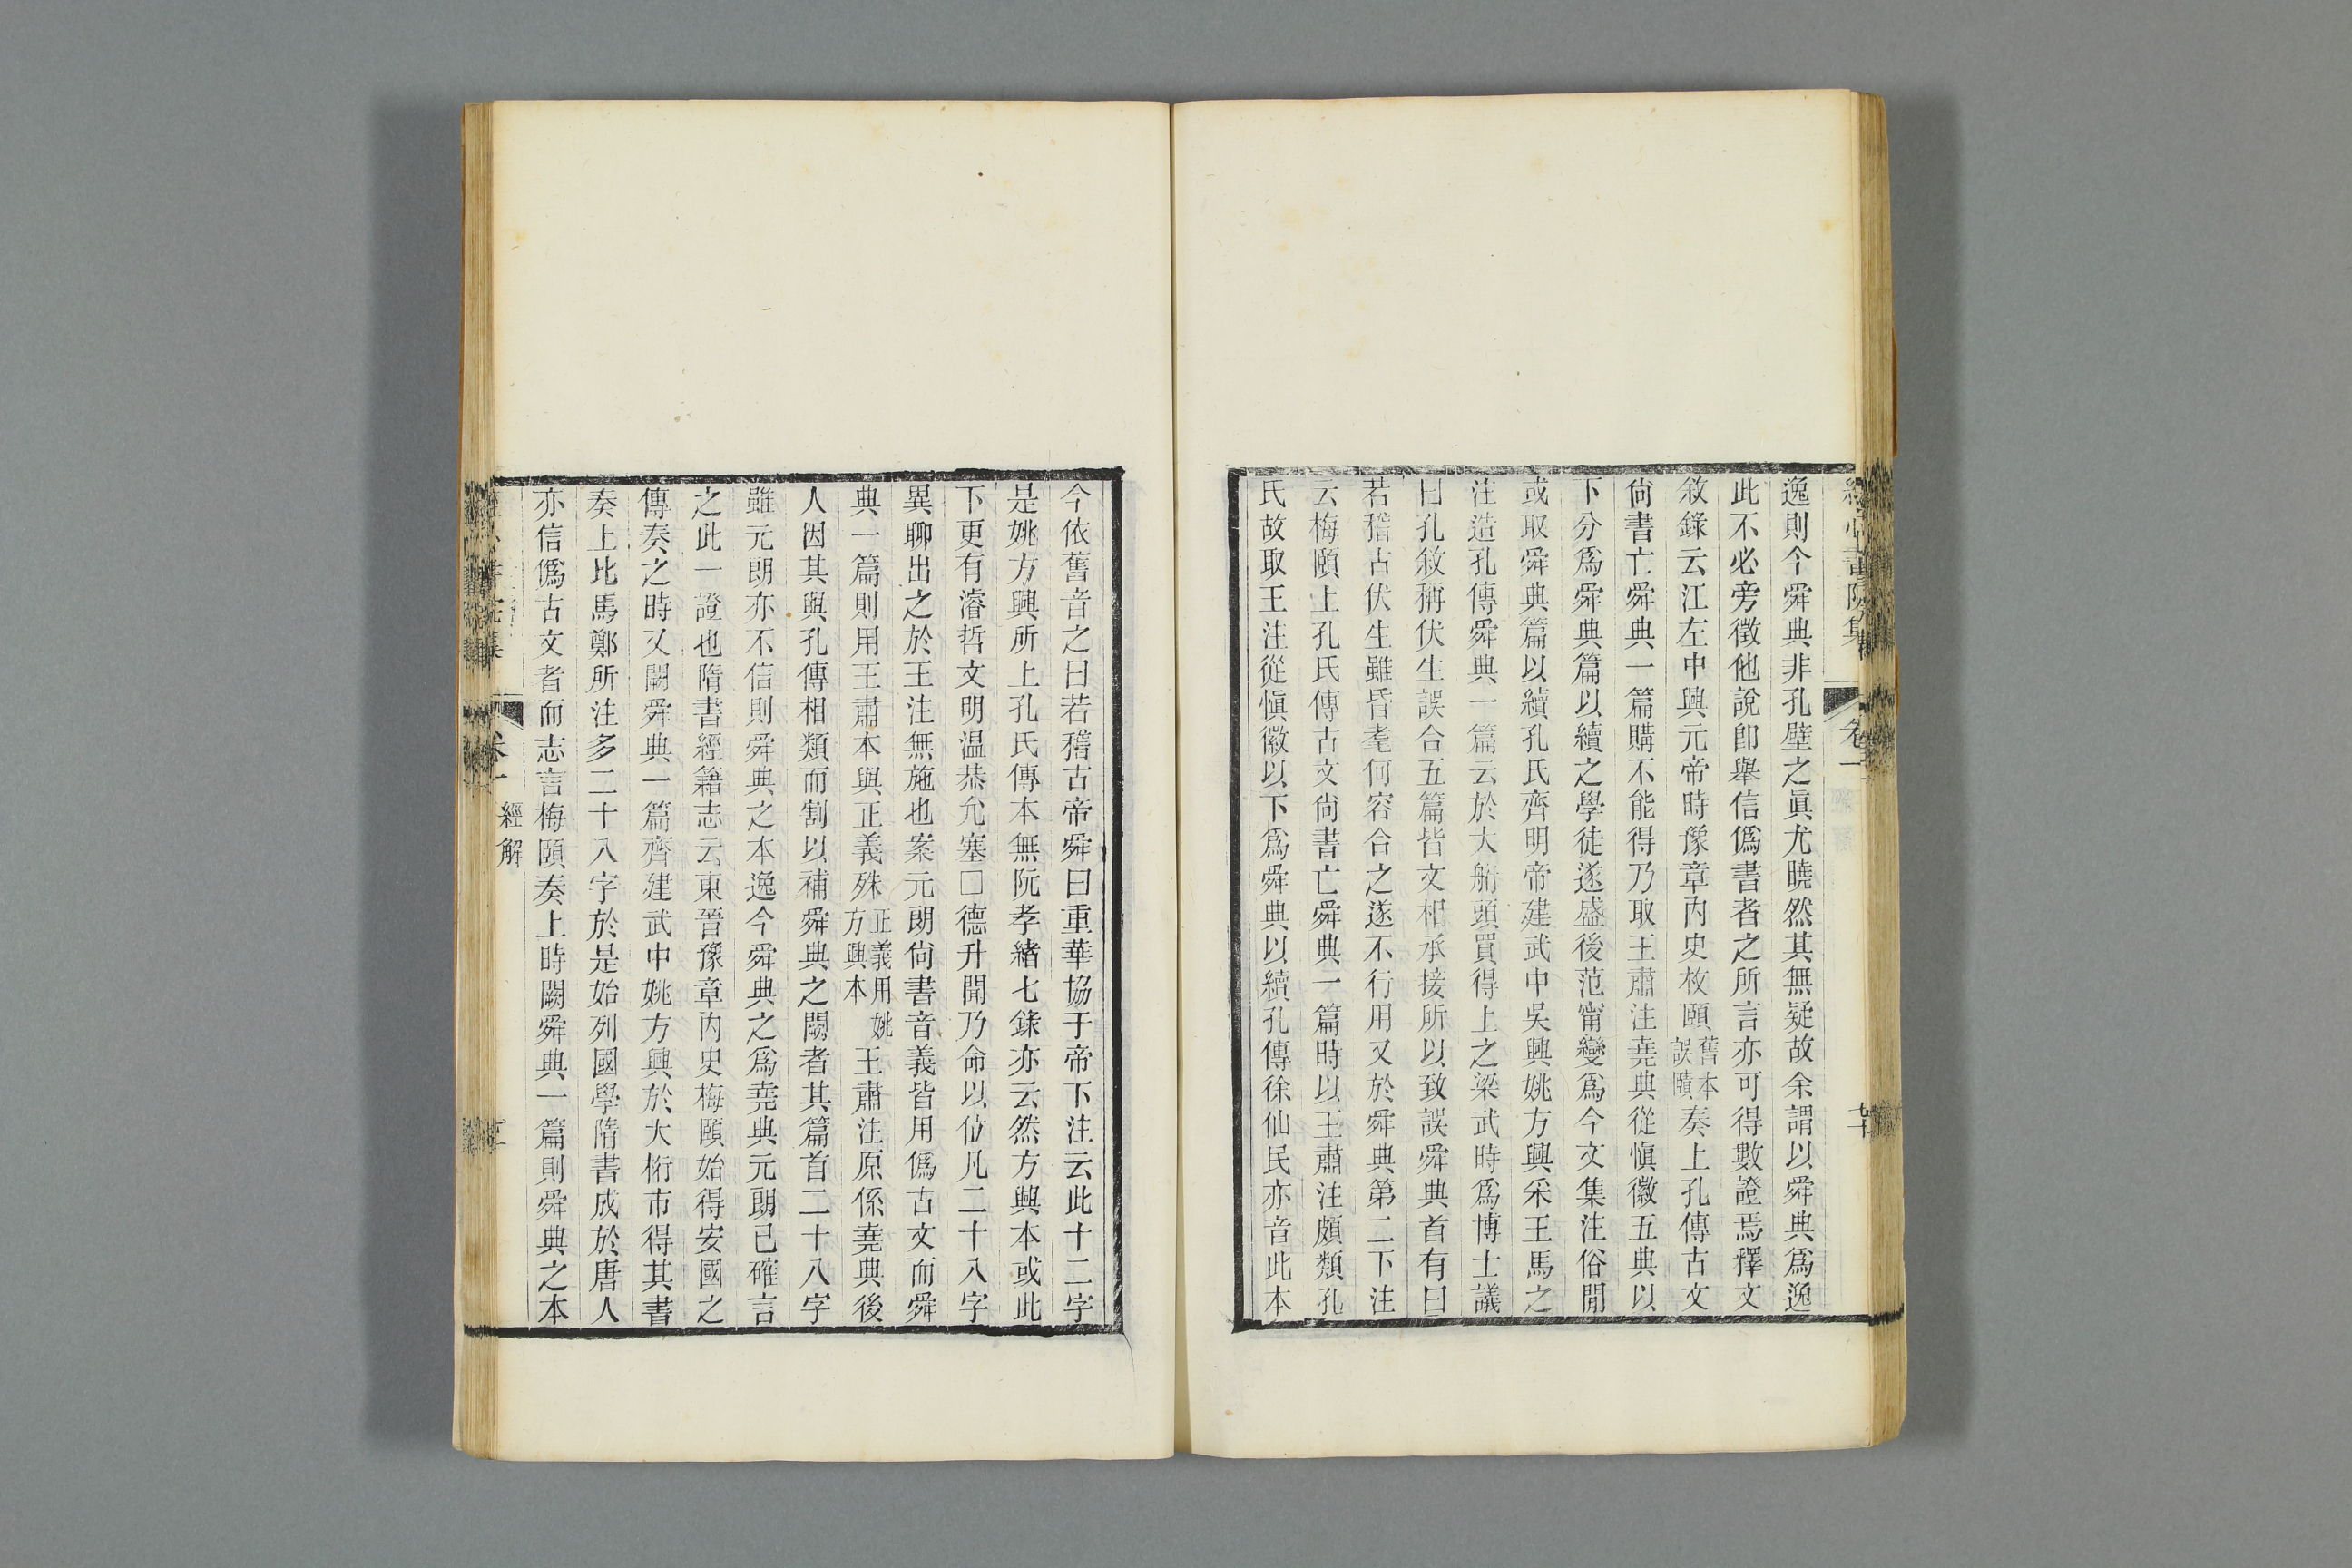 逸則今舜典非孔壁之眞尤曉然其無疑故余謂以舜典爲逸
此不必旁徵他說卽舉信僞書者之所言亦可得數證焉釋文
敘錄云江左中興元帝時豫章內史枚頤舊本誤賾奏上孔傳古文
尙書亡舜典一篇購不能得乃取王肅注堯典從愼徽五典以
下分爲舜典篇以續之學徒遂盛後范甯變爲今文集注俗閒
或取舜典篇以續孔氏齊明帝建武中吳興姚方興采王馬之
注造孔傳舜典一篇云於大航頭買得上之梁武時爲博士議
曰孔敘稱伏生誤合五篇皆文相承接所以致誤舜典首有曰
若稽古伏生雖昏耄何容合之遂不行用又於舜典第二下注
云梅頤上孔氏傳古文尙書亡舜典一篇時以王肅注頗類孔
氏故取王注從愼徽以下爲舜典以續孔傳徐仙民亦音此本
今依舊音之曰若稽古帝舜曰重華協于帝下注云此十二字
是姚方興所上孔氏傳本無阮孝緒七錄亦云然方興本或此
下更有濬哲文明温恭允塞□德升聞乃命以位凡二十八字
異聊出之於王注無施也案元朗尙書音義皆用僞古文而舜
典一篇則用王肅本與正義殊正義用姚方興本王肅注原係堯典後
人因其與孔傳相類而割以補舜典之闕者其篇首二十八字
雖元朗亦不信則舜典之本逸今舜典之爲堯典元朗已確言
之此一證也隋書經籍志云東晉豫章內史梅頤始得安國之
傳奏之時又闕舜典一篇齊建武中姚方興於大桁市得其書
奏上比馬鄭所注多二十八字於是始列國學隋書成於唐人
亦信僞古文者而志言梅頤奏上時闕舜典一篇則舜典之本
卷一
經解